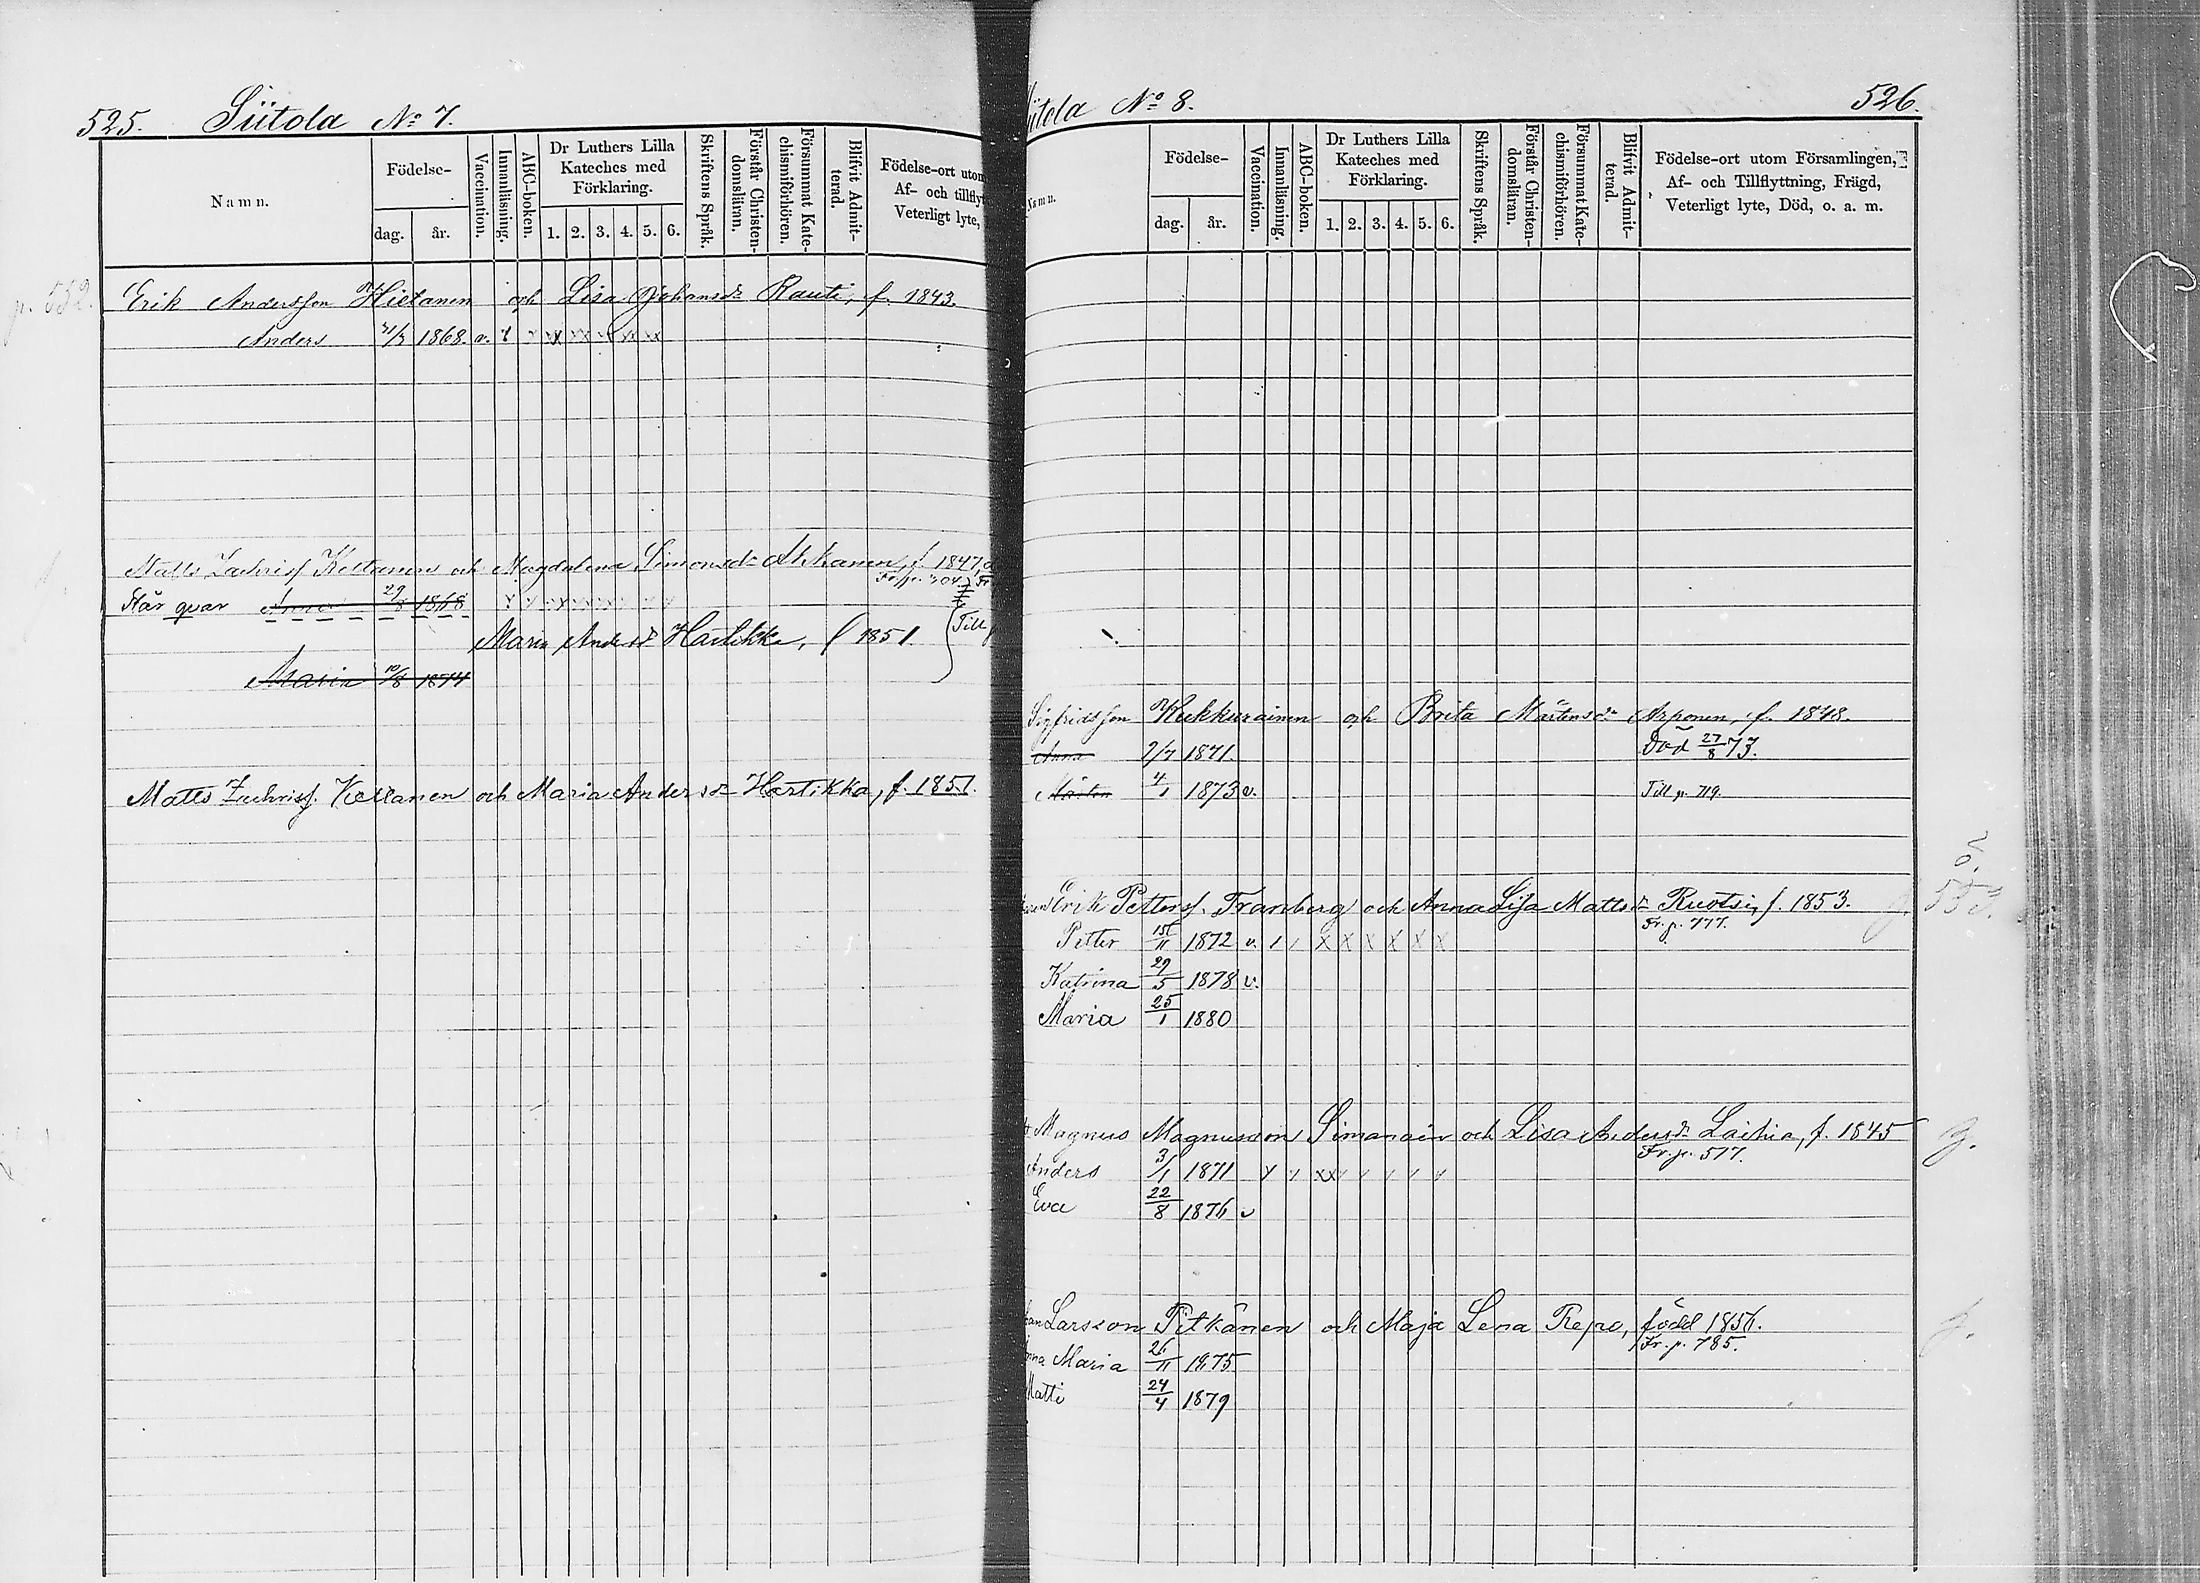 525. Siitola No 7.
Namn.
Födelse-
dag. år.
Vaccination.
Innanläsning.
ABC-boken.
Dr Luthers Lilla
Kateches med
Förklaring.
1. 2. 3. 4. 5. 6.
Skriftens Språk.
Förstår Christen-
domsläran.
Försummat Kate-
chismiförhören.
Blifvit Admit-
terad.
Födelse-ort utom
Af- och tillfly
Veterligt lyte,
p. 532.
Erik Andersson Hietanen och Lisa Johansdr Rauti, f. 1843.
Anders 1868. v.
Matts Zachrisf Keltanen och Magdalena Simonsdr Ahkanen, f. 1847,
Står qvar Anna 29/8 1868
Maria Andersdr Hartikka, f 1851. Till
Maria 10/8 1874
Matts Zachrisf. Keltanen och Maria Andersdr Hartikka, f. 1851.
itola No 8. 526.
Namn.
Födelse-
dag. år.
Vaccination.
Innanläsning.
ABC-boken.
Dr Luthers Lilla
Kateches med
Förklaring.
1. 2. 3. 4. 5. 6.
Skriftens Språk.
Förstår Christen-
domsläran.
Försummat Kate-
chismiförhören.
Blifvit Admit-
terad.
Födelse-ort utom Församlingen,
Af- och Tillflyttning, Frägd,
Veterligt lyte, Död, o. a. m.
Sigfridsson Kukkurainen och Brita Mårtensdr Arponen, f. 1848.
Anna 2/7 1871. Död 27/8 73.
Mårten 4/1 1873 v. Till p. 719.
Erik Pettersf. Framberg och Anna Lisa Mattsdr Ruotsi, f. 1853.
Fr. p. 777.
Petter 15/11 1872 v. 1 1 X X X X X X
Katrina 29/5 1878 v.
Maria 25/1 1880
Magnus Magnusson Simanain och Lisa Andersdr Laihia, f. 1845
Fr. p. 517.
Anders 3/1 1871
Eva 22/8 1876 v
Larsson Pitkänen och Maja Lena Repo, född 1856.
Fr. p. 785.
nna Maria 26/11 1875
Matti 24/4 1879